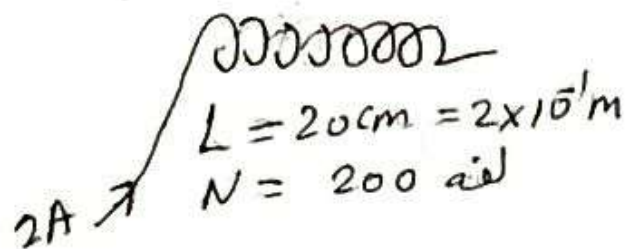 L = 20cm = 2x10⁻¹m
N = 200 لفة
2A